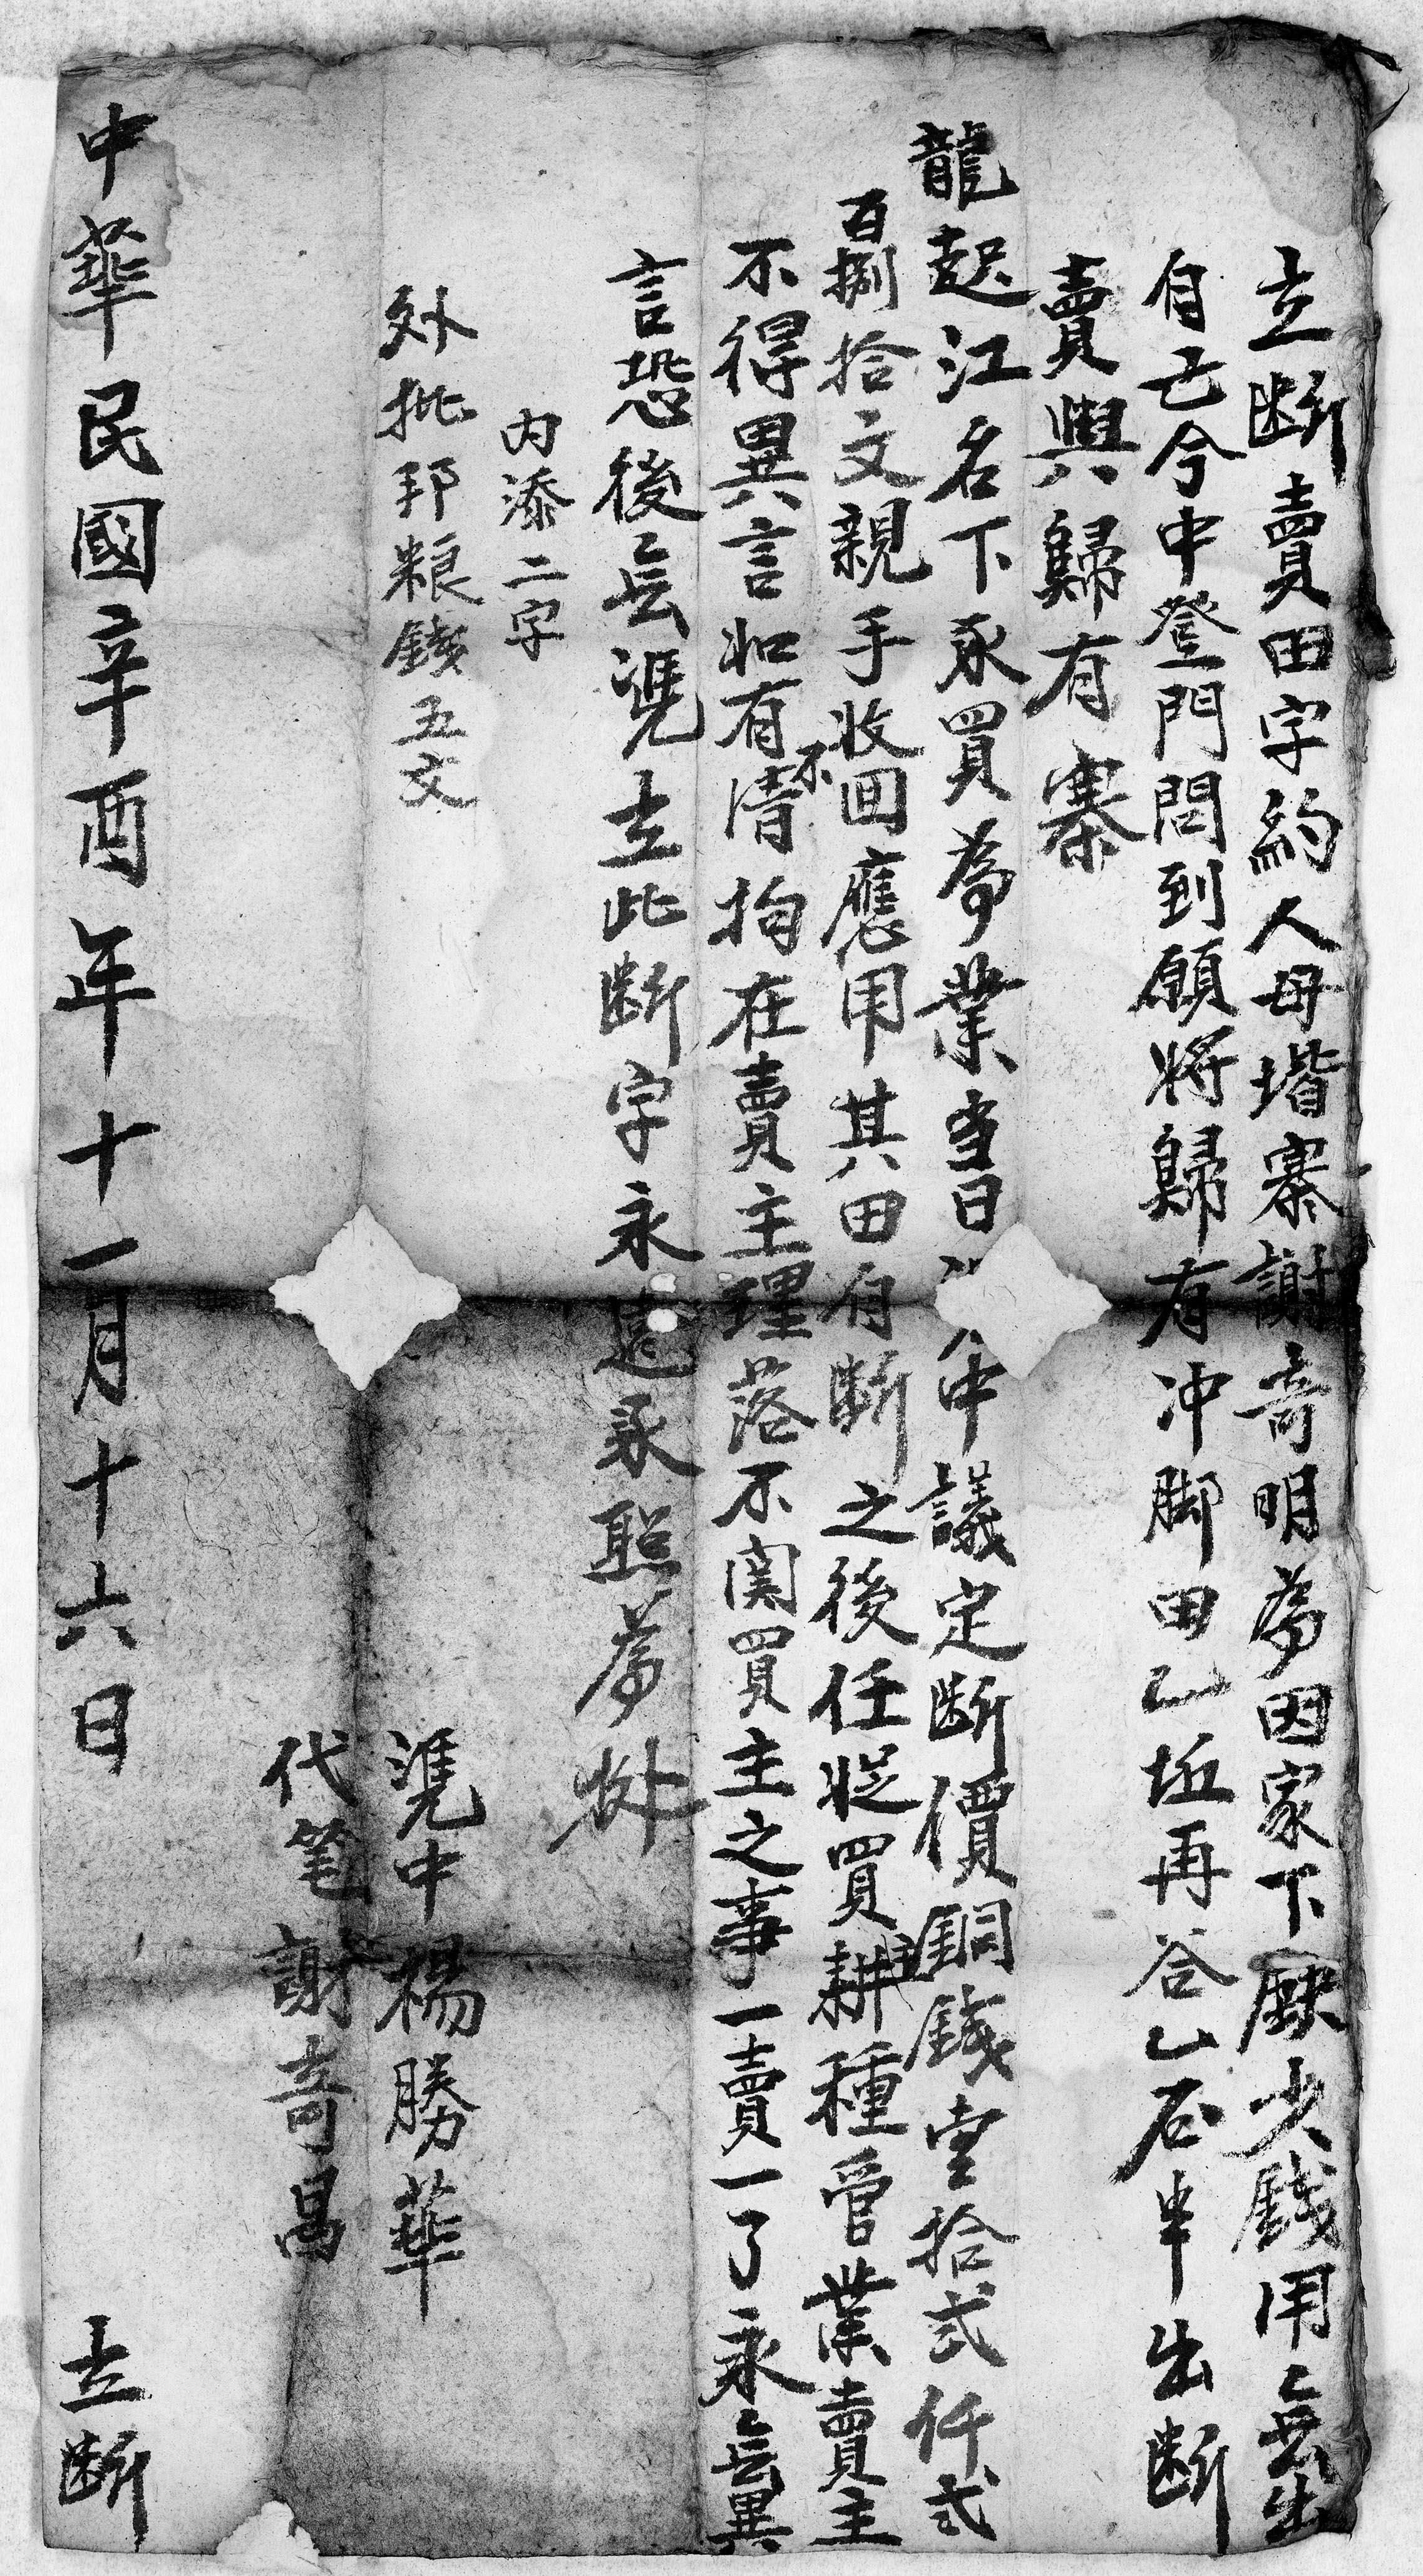 立断賣田字約人毋堦寨謝竒明為因家下缺少錢用無出
自己今中登門問到願將歸有冲脚田乙坵再谷乙石半出断
賣與歸有寨
龍起江名下承買為業當日中議定断價銅錢壹拾弍仟弍
百捌拾文親手收回應用其田自断之後任従買主耕種管業賣主
不得異言如有不清拘在賣主理落不関買主之事一賣一了永無異
言恐後無凴立此断字永遠承照為據
内添二字
外批邦粮錢五文
凴中楊勝華
代笔謝竒昌
中華民國辛酉年十一月十六日 立断